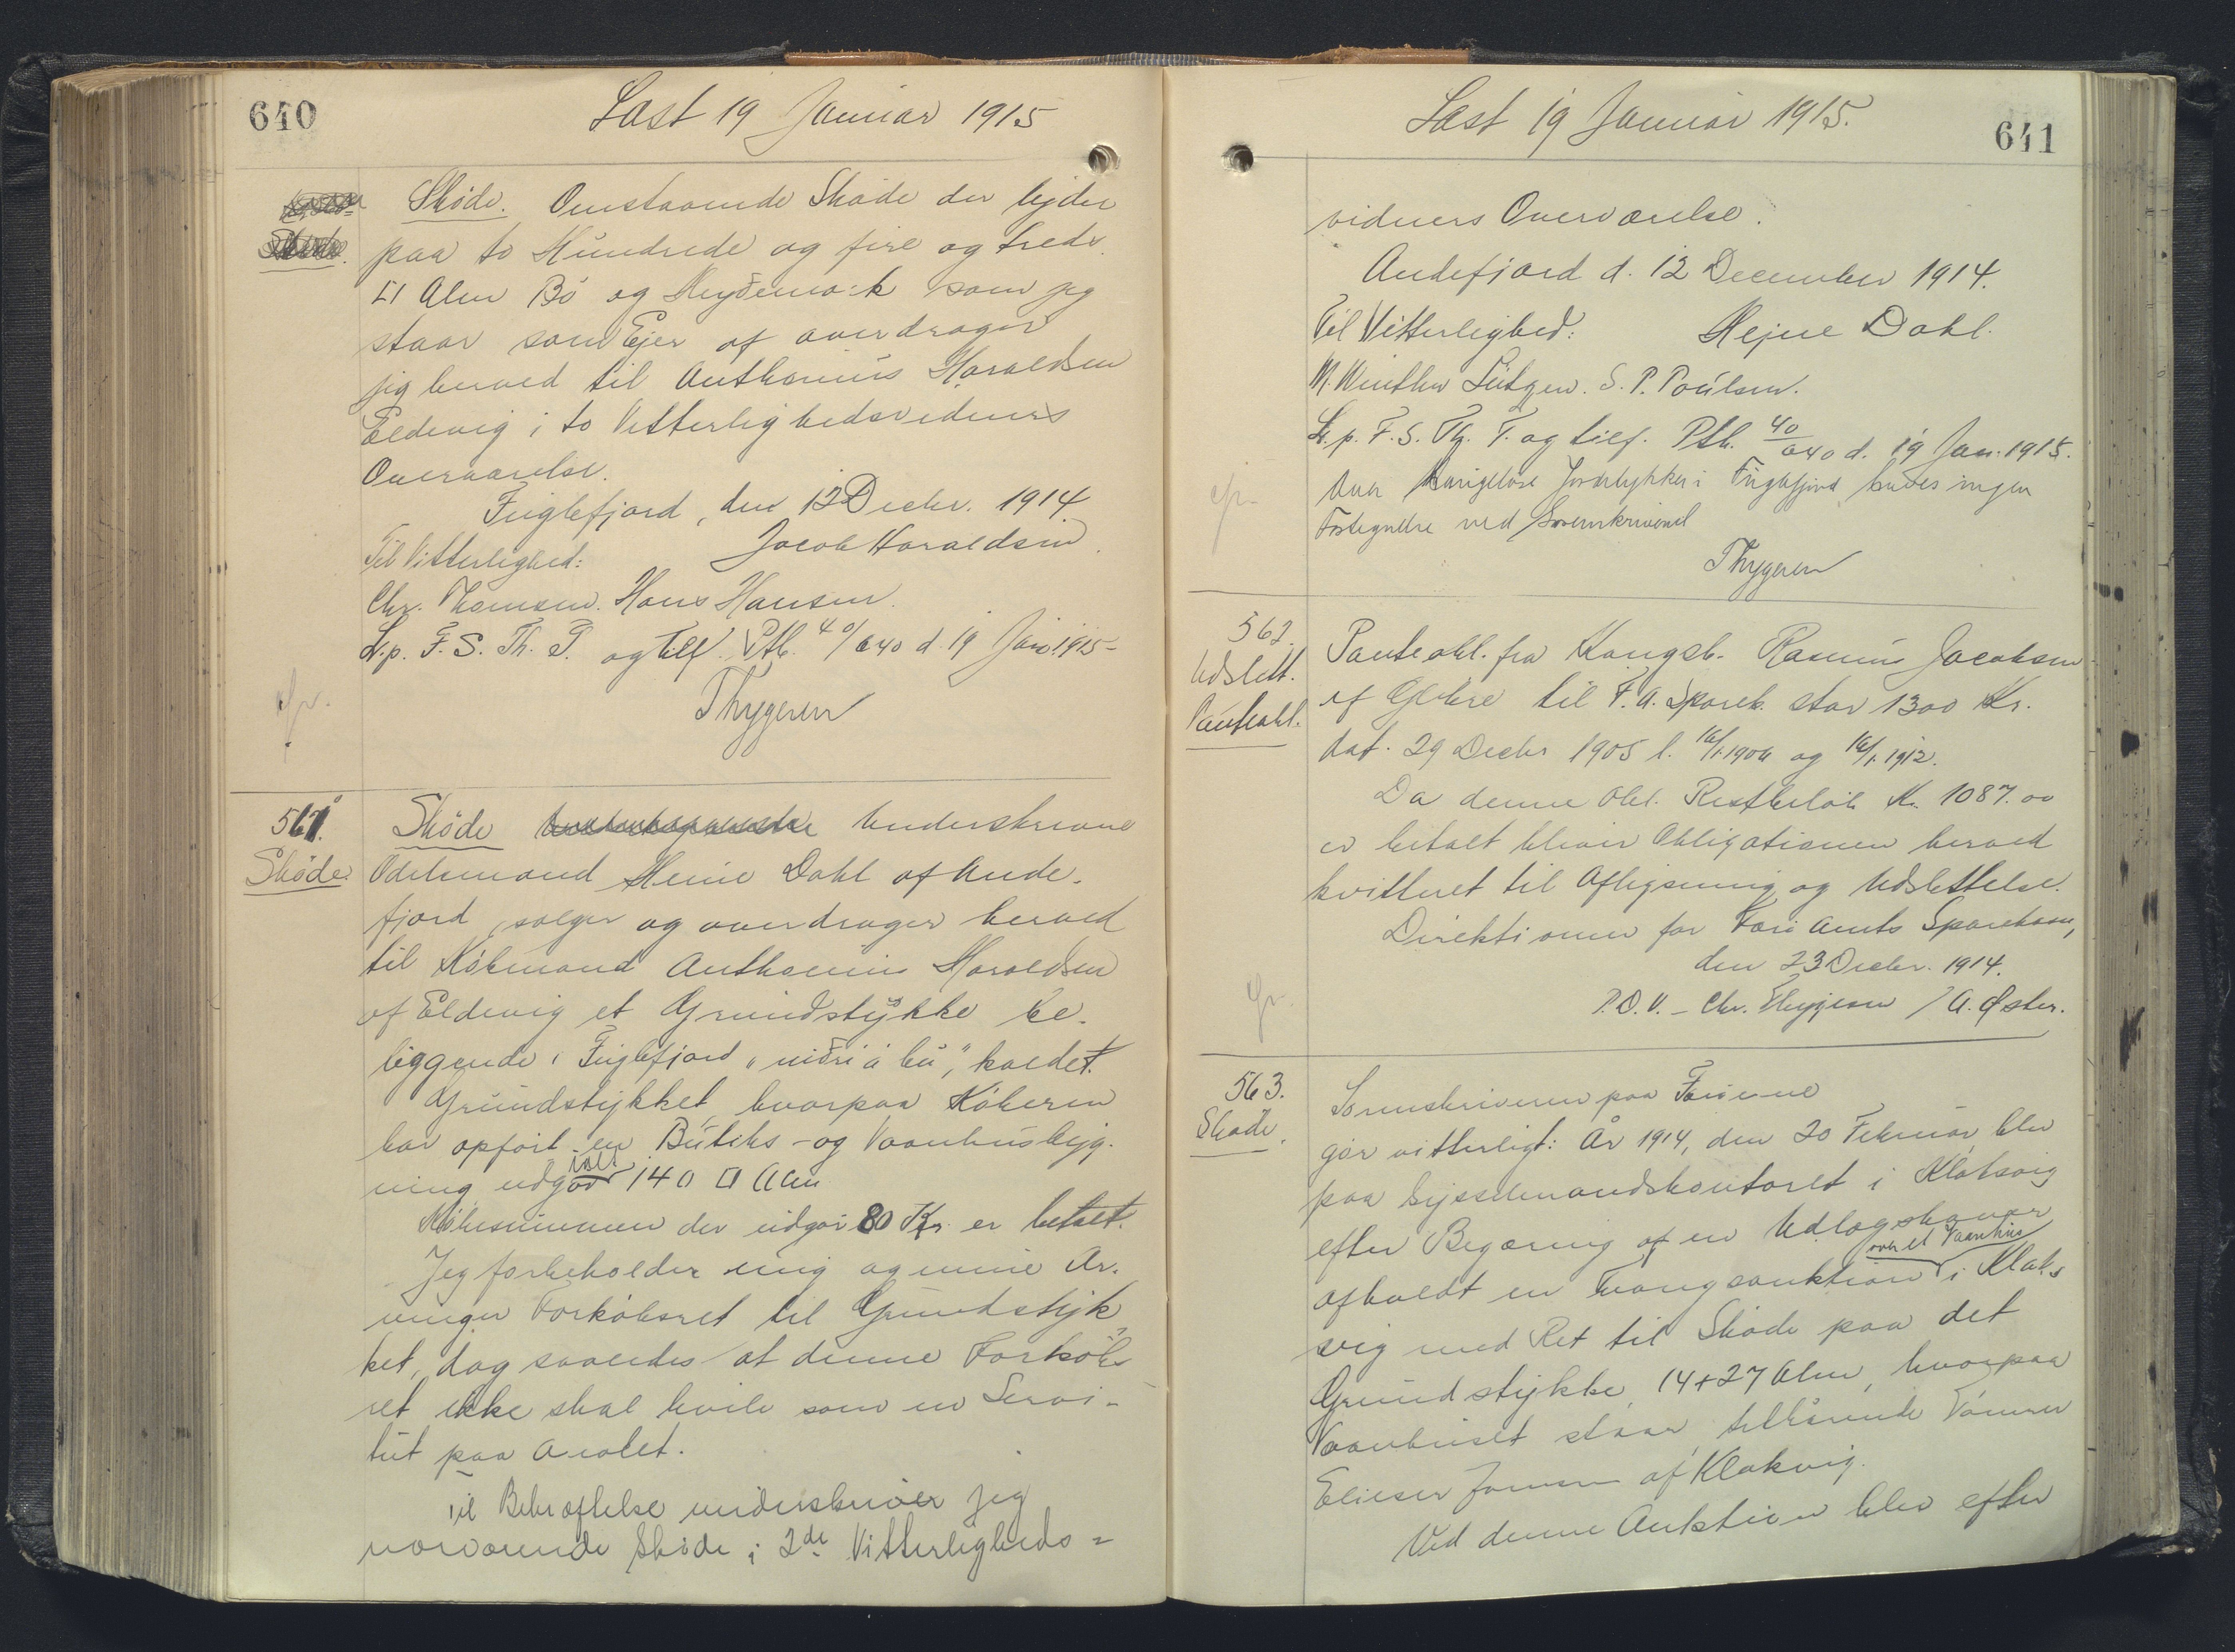 640
Læst 19 Januar 1915
Skøde. Omstaaende Skøde der lyder
paa to Hundrede og fire og treds
□ Alen Bø og som jeg
staar som Ejer af overdrager
jeg herved til Anthonius Haraldsen
Eldevig i to Vitterlighedsvidners
Overværelse.
Fuglefjord, den 12 Decbr. 1914
Til Vitterlighed: Jacob Haraldsen.
Chr. Thomsen. Hans Hansen.
L. p. F. S. Th. T. og Tilf. Ptb. 40/640 d. 19 Jan 1915
Thygesen
cfr.
561.
Skøde.
Skøde Underskrevne
Odelsmand Heine Dahl af Ande-
fjord, sælger og overdrager herved
til Købmand Anthonius Haraldsen
af Eldevig et Grundstykke be-
liggende i Fuglefjord „niðri á bû", kaldet.
Grundstykket hvorpaa Køberen
har opført en Butiks- og Vaanhusbyg-
ning udgør ialt 140 □ Alen
Købesummen der udgør 80 Kr. er betalt.
Jeg forbeholder mig og mine Ar-
vinger Forkøbsret til Grundstyk-
ket, dog saaledes at denne Forkøbs-
ret ikke skal hvile som en Servi-
tut paa Arealet.
Til Bekræftelse underskriver jeg
nærværende Skøde i 2de Vitterligheds=
Læst 19 Januar 1915.
641
vidners Overværelse.
Andefjord d. 12 December 1914.
Til Vitterlighed: Hejne Dahl.
M. Winther Lützen. S. P. Poulsen.
L. p. F. S. Th. T. og tilf. Ptb. 40/640 d. 19 Jan. 1915.
Over Jordstykker i Fuglefjord haves ingen
Fortegnelse ved Sorenskriveriet
Thygesen
cfr.
562.
Udslett.
Panteobl.
Panteobl. fra Kongsb. Rasmus Jacobsen
af Gøtere til F. A. Spareb. stor 1300 Kr.
dat. 29 Decbr 1905 l. 16/1 1906 og 16/1 1912.
Da denne Obl. Restbeløb Kr. 1087.00
er betalt bliver Obligationen herved
kvitteret til Aflysning og Udslettelse.
Direktionen for Færø Amts Sparekasse,
den 23 Decbr. 1914.
P. D. V. - Chr. Thygesen / A. Øster.
cfr.
563.
Skøde.
Sorenskriveren paa Færøerne
gør vitterligt: År 1914, den 20 Februar blev
paa Sysselmandskontoret i Klaksvig
efter Begæring af en Udlægshaver
afholdt en Tvangsauktion over et Vaanhus i Klaks-
vig med Ret til Skøde paa det
Grundstykke, 14+27 Alen, hvorpaa
Vaanhuset staar, tilhørende Tømrer
Elieser Joensen af Klaksvig.
Ved denne Auktion blev efter